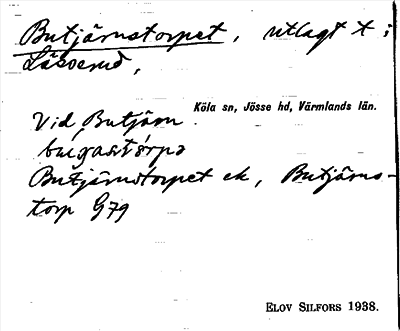 Butjärnstorpet, utlagt t i
Låsserud,
Köla sn, Jösse hd, Värmlands län.
Vid Butjärn
Butjärnstorpet ek, Butjärns-
torp G79
ELOV SILFORS 1938.